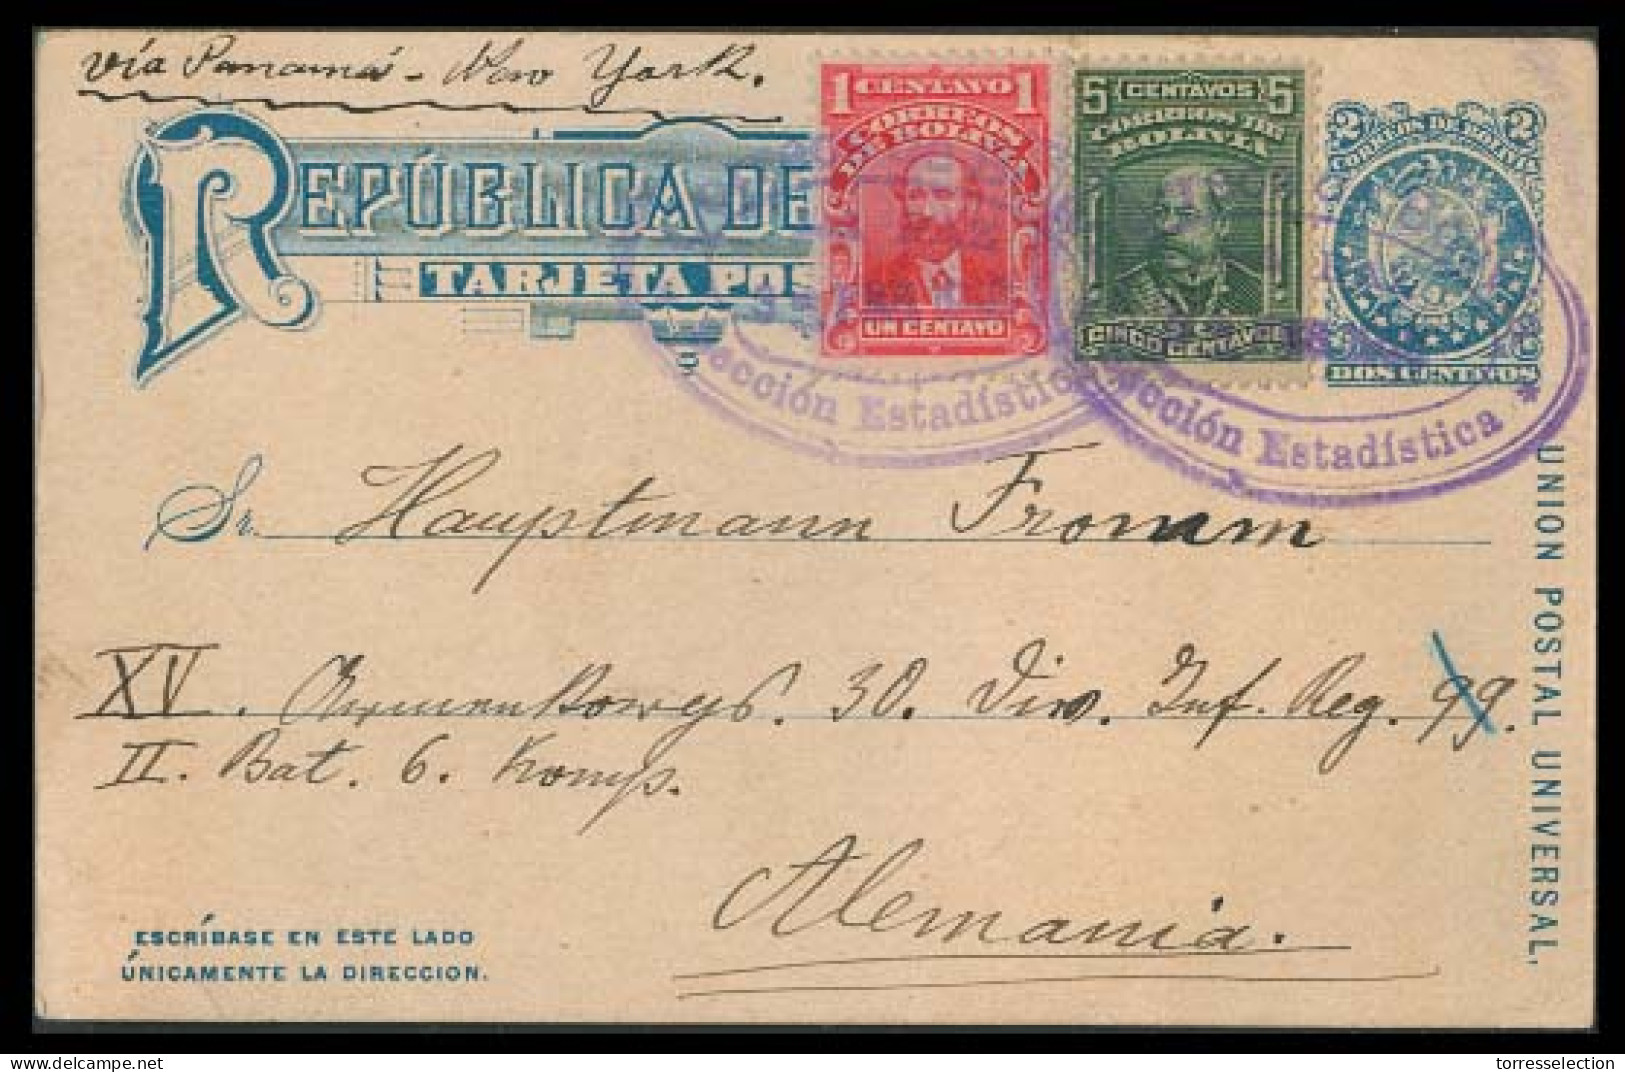 vía Panamá - New York.
REPÚBLICA DE
TARJETA POS
1 CENTAVO 1
CORREOS
DE BOLIVIA
UN CENTAVO
5 CENTAVOS 5
CORREOS DE
BOLIVIA
CINCO CENTAVOS
2 CORREOS DE BOLIVIA 2
DOS CENTAVOS
ección Estadística
ección Estadística *
Sr. Hauptmann Fromm
XV. Armeekorps. 30. Div. Inf. Reg. 99.
II. Bat. 6. Komp.
Alemania.
ESCRÍBASE EN ESTE LADO
ÚNICAMENTE LA DIRECCION.
UNION POSTAL UNIVERSAL.
delcampe.net
torresselection